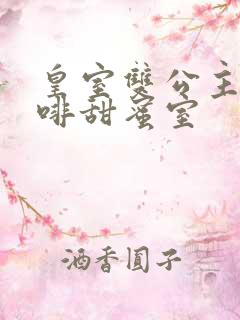 皇室雙公主
啡甜蜜室
酒香圓子